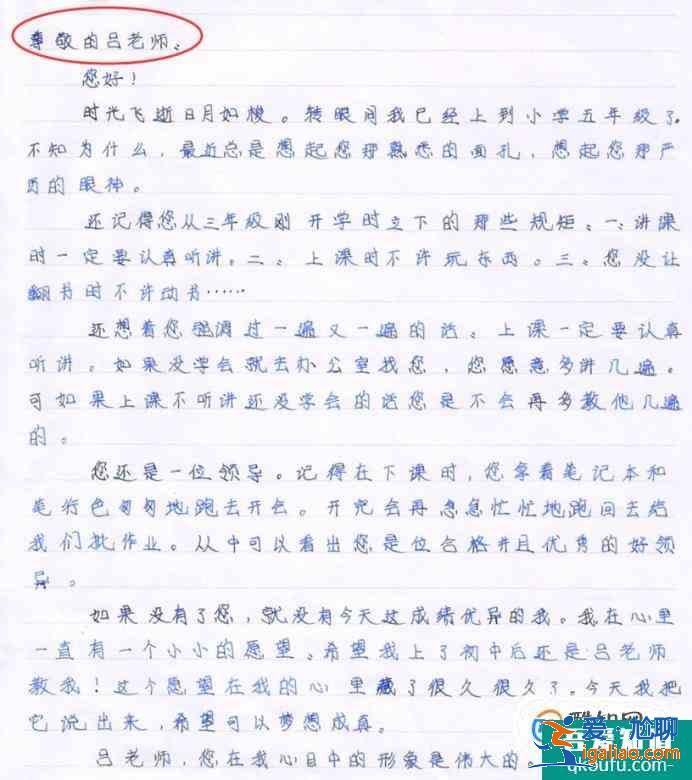 尊敬的吕老师、
您好！
时光飞逝日月如梭。转眼间我已经上到小学五年级了。
不知为什么，最近总是想起您那熟悉的面孔，想起您那严
厉的眼神。
还记得您从三年级刚开学时立下的那些规矩、一、讲课
时一定要认真听讲。二、上课时不许玩东西。三、您没让
翻书时不许动书……
还想着您强调过一遍又一遍的话。上课一定要认真
听讲。如果没学会就去办公室找您，您愿意多讲几遍。
可如果上课不听讲还没学会的话您是不会再多教他几遍
的。
您还是一位领导。记得在下课时，您拿着笔记本和
笔行色匆匆地跑去开会。开完会再急急忙忙地跑回去给
我们批作业。从中可以看出您是位合格并且优秀的好领
导。
如果没有了您，就没有今天这成绩优异的我。我在心里
一直有一个小小的愿望、希望我上了初中后还是吕老师
教我！这个愿望在我的心里藏了很久很久了。今天我把
它说出来，希望可以梦想成真。
吕老师，您在我心目中的形象是伟大的。
爱尬聊